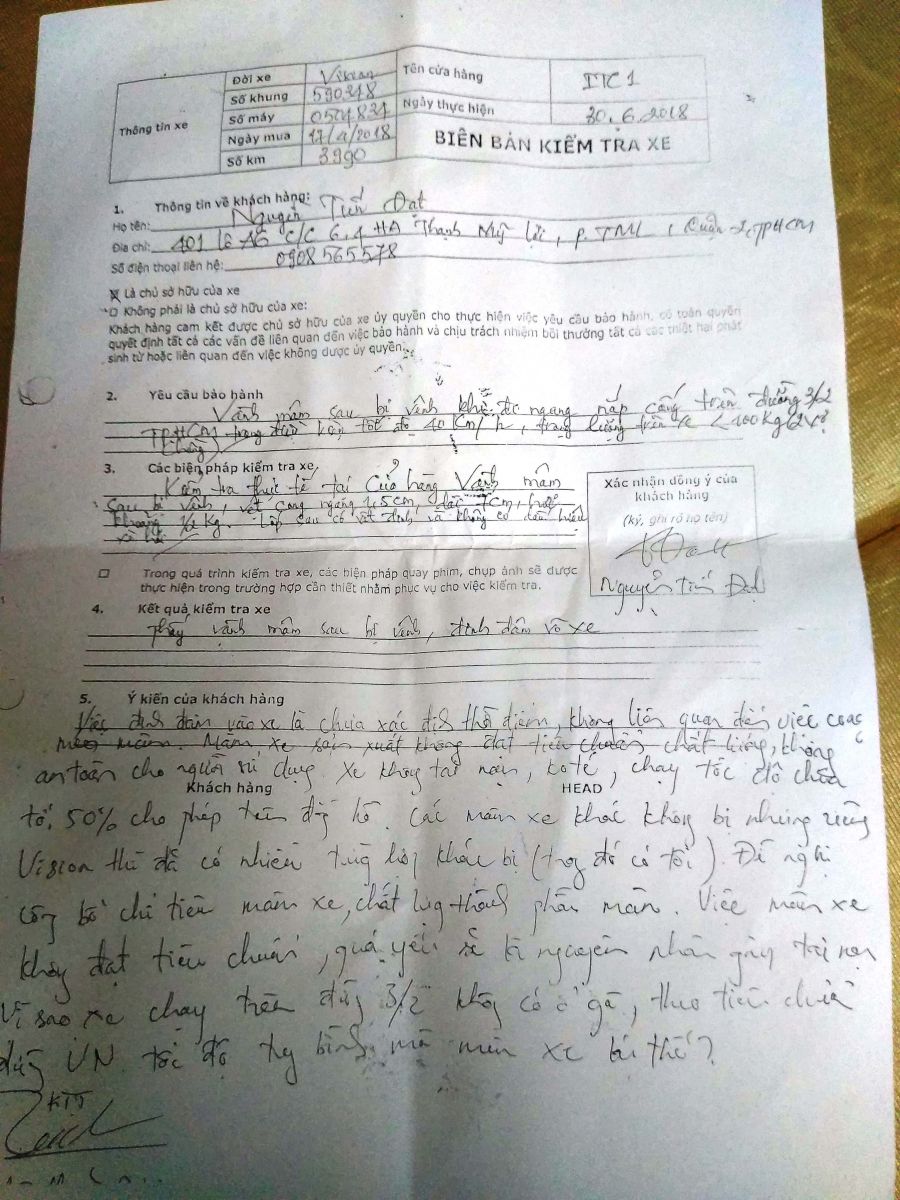 Thông tin xe
Đời xe Vision
Số khung 590318
Số máy 0504831
Ngày mua 17/4/2018
Số km 3990
Tên cửa hàng ITC 1
Ngày thực hiện 30.6.2018
BIÊN BẢN KIỂM TRA XE
1. Thông tin về khách hàng:
Họ tên: Nguyễn Tiến Đạt
Địa chỉ: 401 lô A6 C/C Thạnh Mỹ Lợi, p. TML, Quận 2, TPHCM
Số điện thoại liên hệ: 0908 565578
Là chủ sở hữu của xe
Không phải là chủ sở hữu của xe:
Khách hàng cam kết được chủ sở hữu của xe ủy quyền cho thực hiện việc yêu cầu bảo hành, có toàn quyền
quyết định tất cả các vấn đề liên quan đến việc bảo hành và chịu trách nhiệm bồi thường tất cả các thiệt hại phát
sinh từ hoặc liên quan đến việc không được ủy quyền.
2. Yêu cầu bảo hành
Vành mâm sau bị vênh ngang nắp cống trên đường 3/2
TPHCM tốc độ 40 Km/h, trọng lượng trên xe < 100 Kg (2 vợ
chồng)
3. Các biện pháp kiểm tra xe
Kiểm tra thực tế tại Cửa hàng Vành mâm
sau bị vênh, vết cong ngang 1.5cm, dọc 7cm,
khoảng Kg. Lốp sau có vết đinh và không có dấu hiệu
Xác nhận đồng ý của
khách hàng
(ký, ghi rõ họ tên)
Nguyễn Tiến Đạt
Trong quá trình kiểm tra xe, các biện pháp quay phim, chụp ảnh sẽ được
thực hiện trong trường hợp cần thiết nhằm phục vụ cho việc kiểm tra.
4. Kết quả kiểm tra xe
Thấy vành mâm sau bị vênh, đinh đâm vỏ xe
5. Ý kiến của khách hàng
Việc đinh đâm vào xe là chưa xác định thời điểm, không liên quan đến việc cong
mâm. Mâm xe sản xuất không đạt tiêu chuẩn chất lượng, không
an toàn cho người sử dụng. Xe không tai nạn, ko té, chạy tốc độ chưa
Khách hàng HEAD
tới 50% cho phép trên đg hồ. Các mâm xe khác không bị nhưng riêng
Vision thì đã có nhiều trường hợp khác bị (trog đó có tôi). Đề nghị
công bố chỉ tiêu mâm xe, chất lượng thành phần mâm. Việc mâm xe
không đạt tiêu chuẩn, quá yếu sẽ là nguyên nhân gây tai nạn
Vì sao xe chạy trên đường 3/2 không có ổ gà, theo tiêu chuẩn
đường VN tốc độ trung bình mà mâm xe bị thế?
KTT